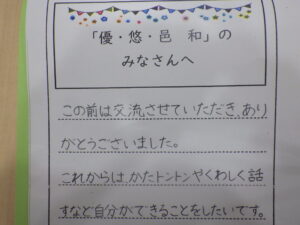 「優・悠・邑　和」の
みなさんへ
この前は交流させていただき、あり
がとうございました。
これからは、かたトントンやくわしく話
すなど自分ができることをしたいです。